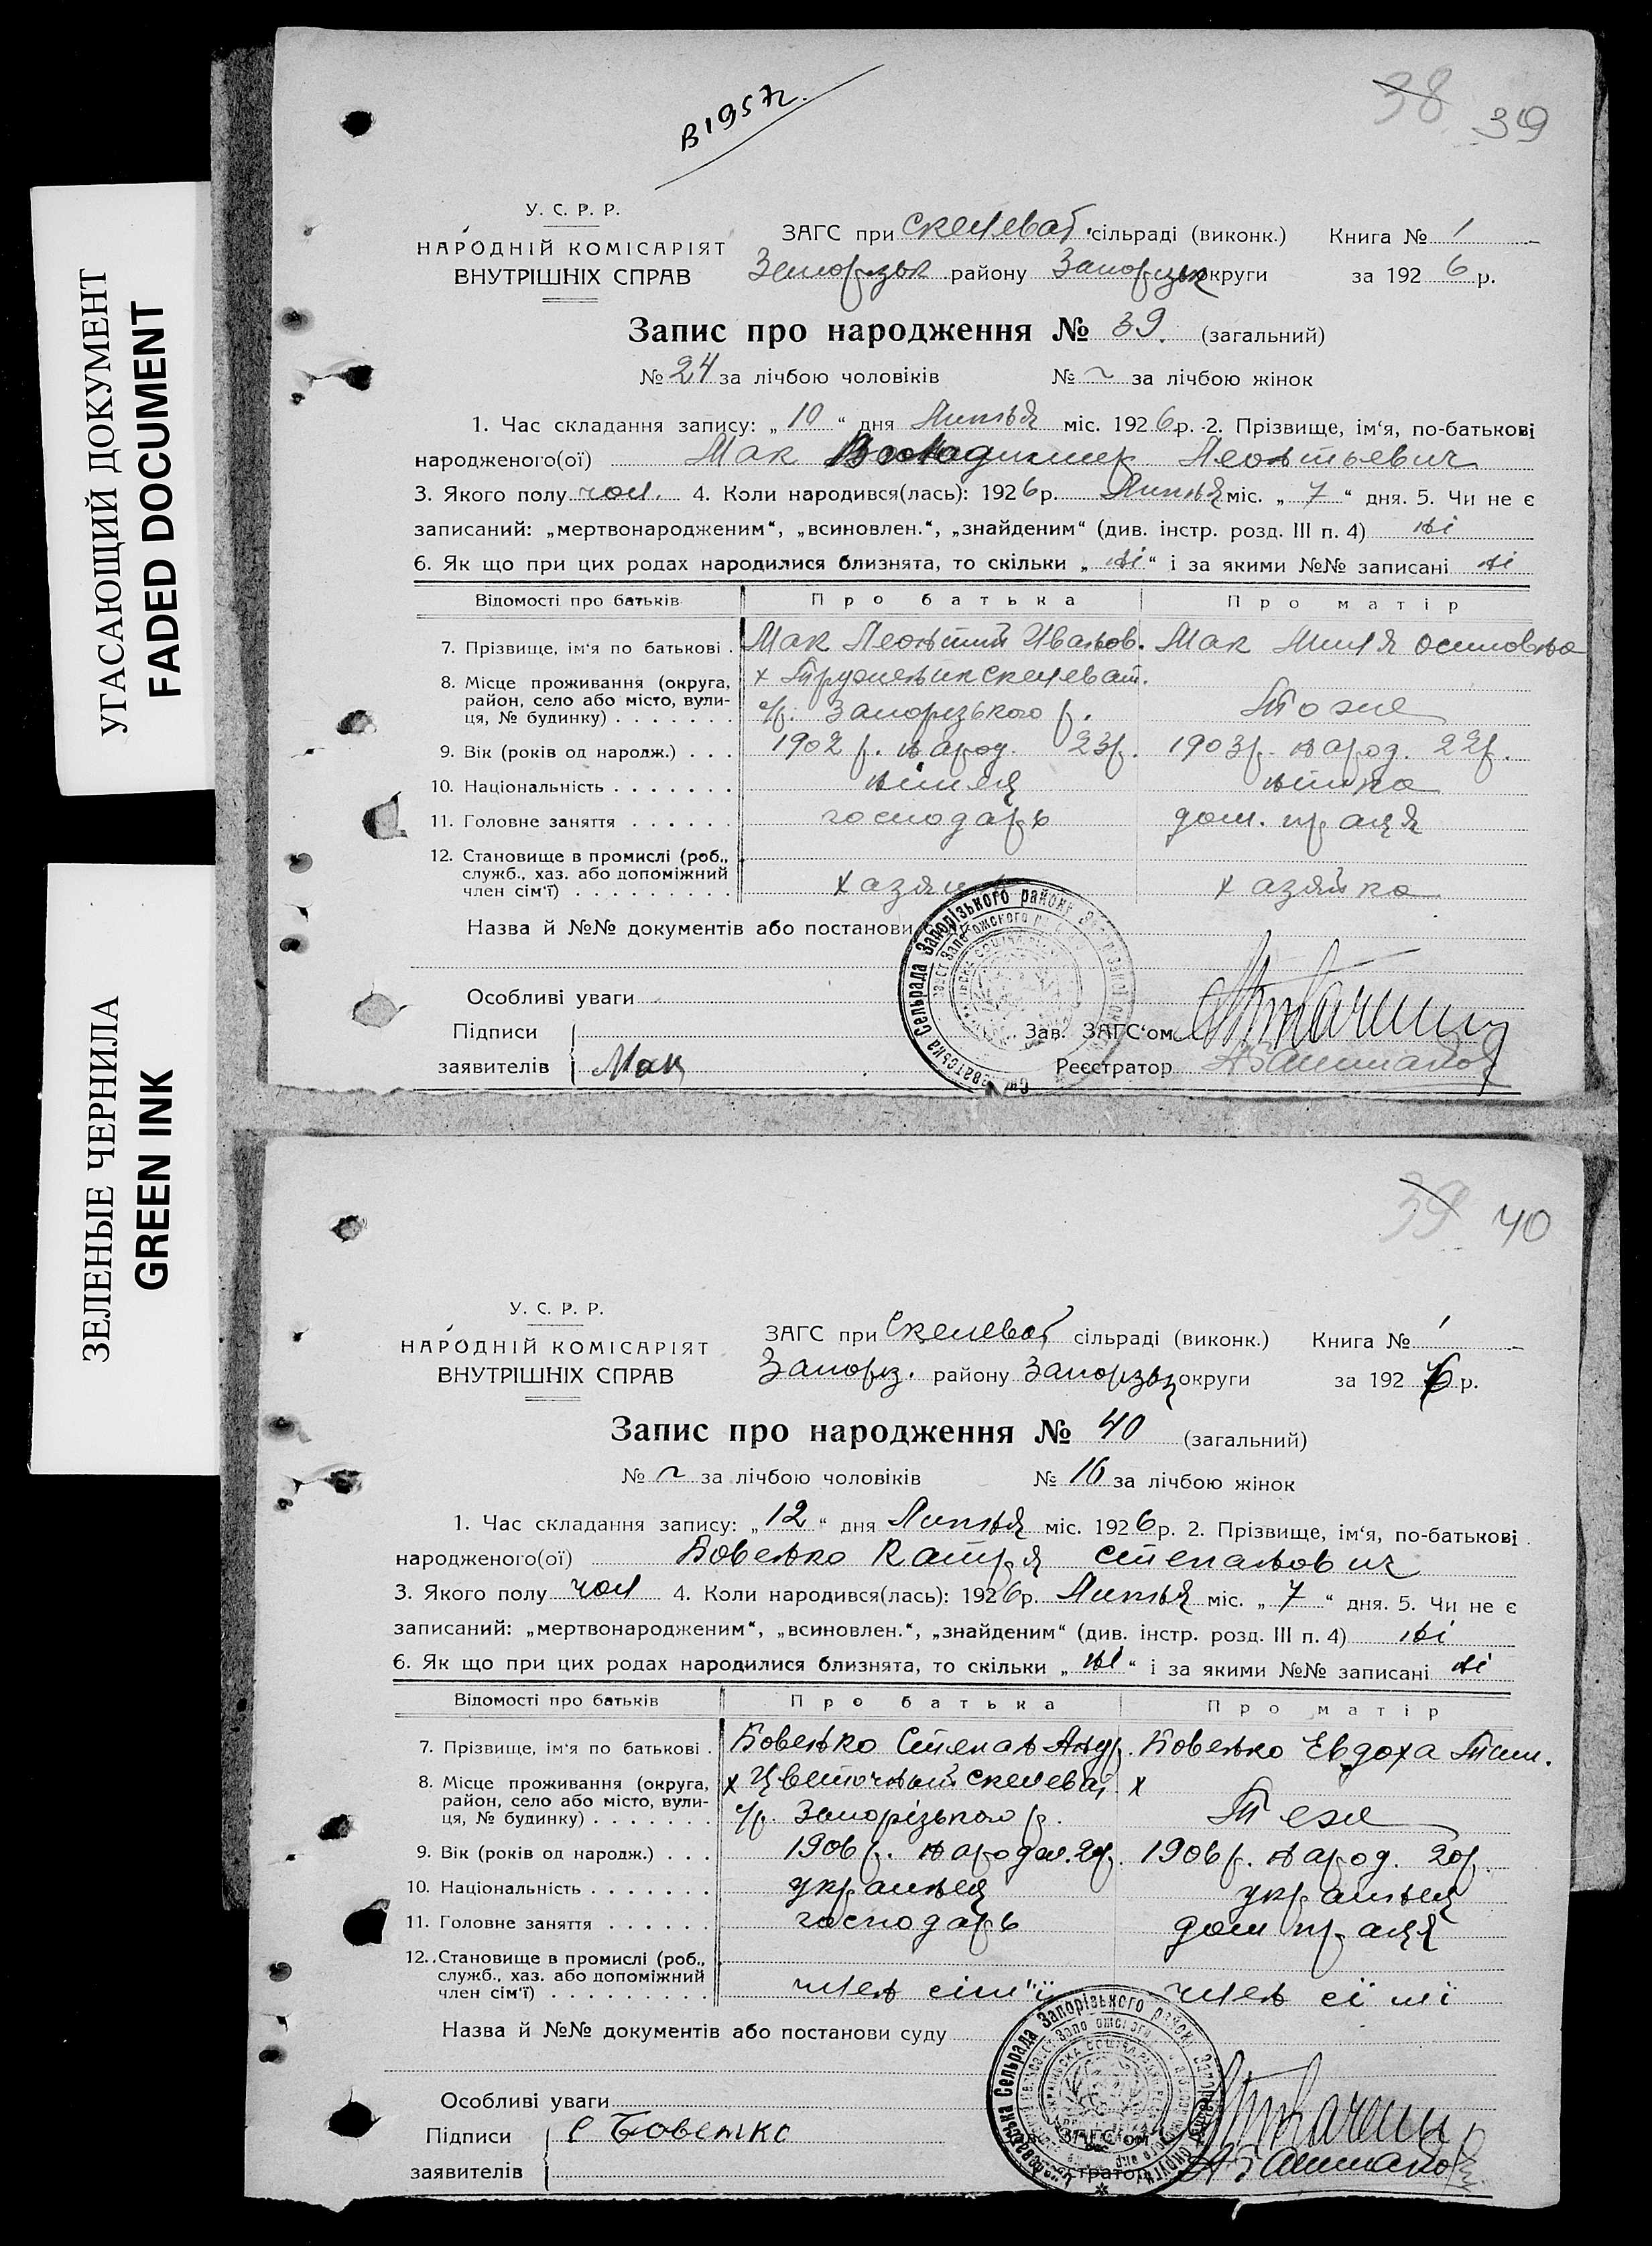 В 1957 г.
38 39
У. С. Р. Р.
НАРОДНІЙ КОМІСАРІЯТ
ВНУТРІШНІХ СПРАВ
ЗАГС при Скелеват. сільраді (виконк.) Книга № 1
Запорізьк району Запорізьк округи за 1926 р.
Запис про народження № 39. (загальний)
№ 24 за лічбою чоловіків № ~ за лічбою жінок
1. Час складання запису: „ 10 “ дня Липня міс. 1926 р. 2. Прізвище, ім‘я, по-батькові
народженого(ої) Мак Володимир Леонтьевич
3. Якого полу чол. 4. Коли народився(лась): 1926 р. Липня міс. „ 7 “ дня. 5. Чи не є
записаний: „мертвонародженим“, „всиновлен.“, „знайденим“ (див. інстр. розд. III п. 4) ні
6. Як що при цих родах народилися близнята, то скільки „ ні “ і за якими №№ записані ні
Відомості про батьків Про батька Про матір
7. Прізвище, ім‘я по батькові . Мак Леонтий Иванов. Мак Осиповна
8. Місце проживання (округа, район, село або місто, вулиця, № будинку) . . . . . . . х Труженик Скелеват.
с/р. Запорізького р. Тоже
9. Вік (років од народж.) . . . 1902 р. народ. 23р. 1903р. народ. 22р.
10. Національність . . . . . . . німец німка
11. Головне заняття . . . . . . господарь дом. праця
12. Становище в промислі (роб., служб., хаз. або допоміжний член сім‘ї) . . . . . . . . . хазяин хазяйка
Назва й №№ документів або постанови
Особливі уваги
Підписи Зав. ЗАГС‘ом
заявителів Мак Реєстратор
39 40
У. С. Р. Р.
НАРОДНІЙ КОМІСАРІЯТ
ВНУТРІШНІХ СПРАВ
ЗАГС при Скелеват сільраді (виконк.) Книга № 1
Запоріз. району Запорізьк округи за 1926 р.
Запис про народження № 40 (загальний)
№ ~ за лічбою чоловіків № 16 за лічбою жінок
1. Час складання запису: „ 12 “ дня Липня міс. 1926 р. 2. Прізвище, ім‘я, по-батькові
народженого(ої) Бовенко Катря Степанович
3. Якого полу чол 4. Коли народився(лась): 1926 р. Липня міс. „ 7 “ дня. 5. Чи не є
записаний: „мертвонародженим“, „всиновлен.“, „знайденим“ (див. інстр. розд. III п. 4) ні
6. Як що при цих родах народилися близнята, то скільки „ ні “ і за якими №№ записані ні
Відомості про батьків Про батька Про матір
7. Прізвище, ім‘я по батькові . Бовенко Степан Андр. Бовенко Евдоха
8. Місце проживання (округа, район, село або місто, вулиця, № будинку) . . . . . . . х Цветочный Скелеват. х
с/р. Запорізького р. Теж
9. Вік (років од народж.) . . . 1906 р. народж. 20р. 1906 р. народ. 20р.
10. Національність . . . . . . . украинец украинец
11. Головне заняття . . . . . . господарь дом праця
12. Становище в промислі (роб., служб., хаз. або допоміжний член сім‘ї) . . . . . . . . . член сім"ї член сімї
Назва й №№ документів або постанови суду
Особливі уваги
Підписи С Бовенко
заявителів
УГАСАЮЩИЙ ДОКУМЕНТ
FADED DOCUMENT
ЗЕЛЕНЫЕ ЧЕРНИЛА
GREEN INK